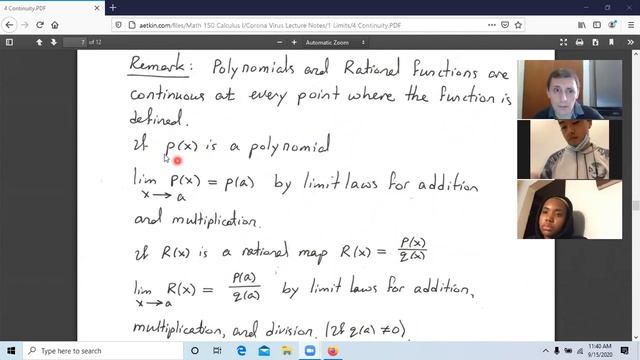 4 Continuity.pdf
aetkin.com/files/Math 150 Calculus I/Corona Virus Lecture Notes/1 Limits/4 Continuity.pdf
7 of 12
Automatic Zoom
Remark: Polynomials and Rational Functions are
continuous at every point where the function is
defined.
If p(x) is a polynomial
lim p(x) = p(a) by limit laws for addition
x → a
and multiplication.
If R(x) is a rational map R(x) = p(x)/q(x)
lim R(x) = p(a)/q(a) by limit laws for addition,
x → a
multiplication, and division. (If q(a) ≠ 0)
Type here to search
11:40 AM
9/15/2020